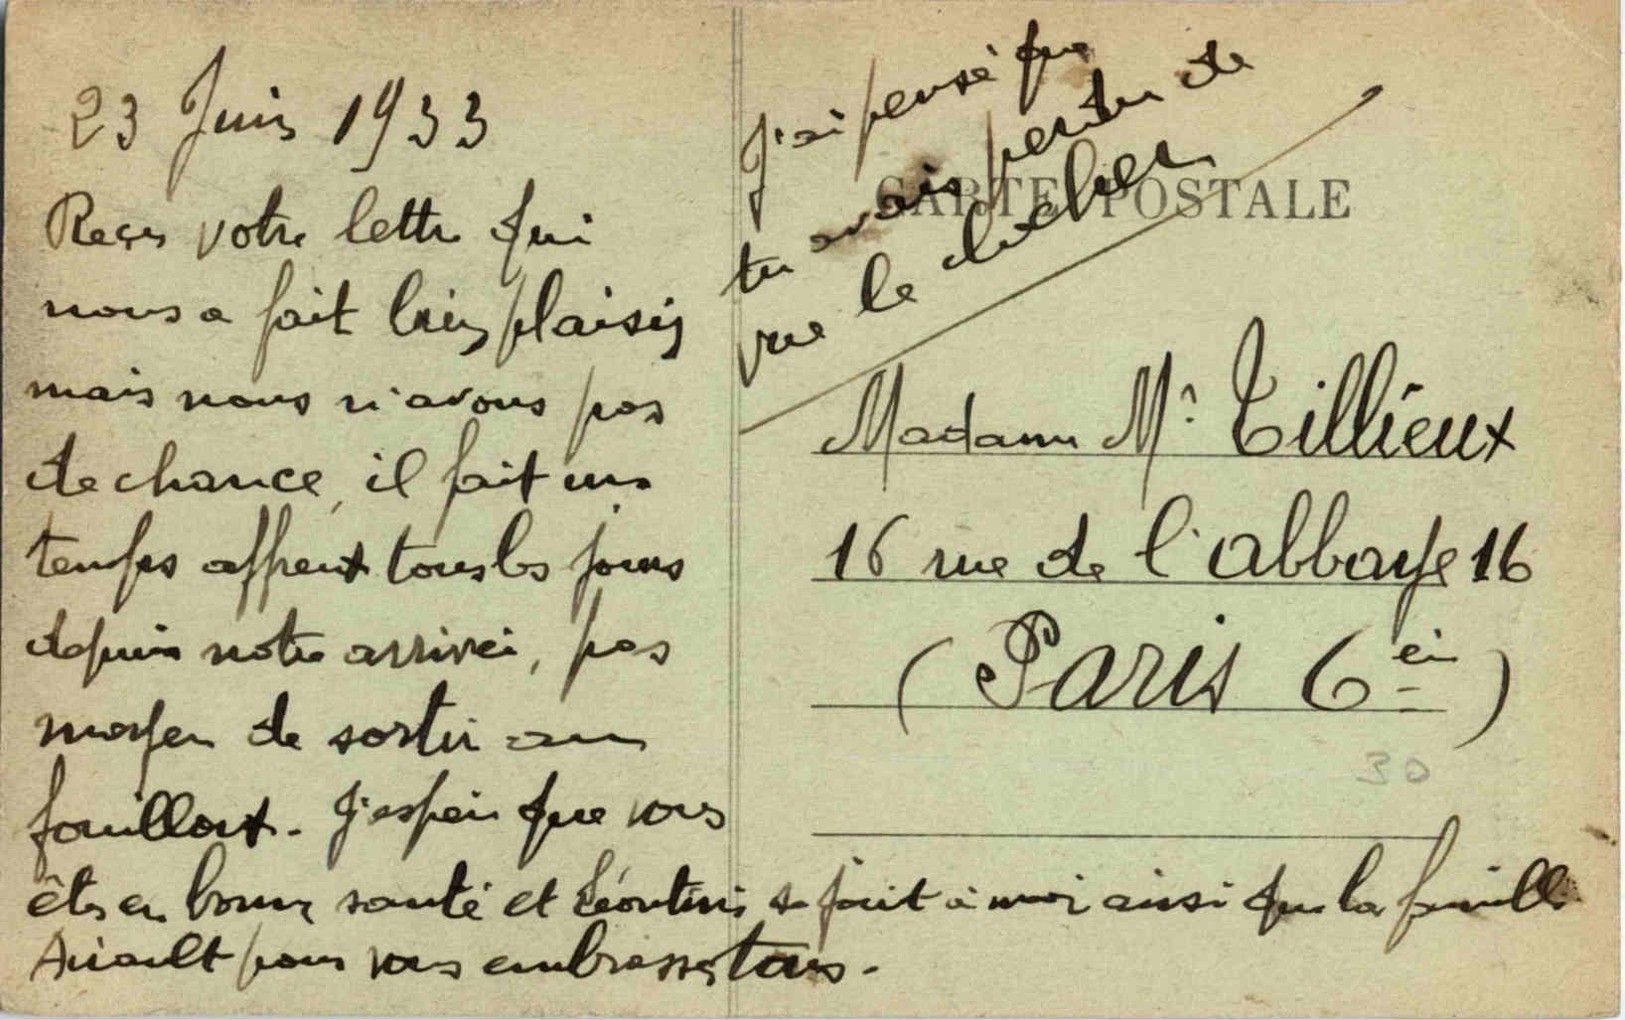 23 Juin 1933
Reçu votre lettre qui
nous a fait bien plaisir
mais nous n'avons pas
de chance, il fait un
temps affreux tous les jours
depuis notre arrivée, pas
moyen de sortir au
fouillout. J'espère que vous
êtes en bonne santé et Léontine se joint à moi ainsi que la famille
pour vous embrasser tous.
J'ai pensé que
tu avais perdu de
vue le clocher
CARTE POSTALE
Madame Mce Tillieux
16 rue de l'abbaye 16
(Paris 6e)
30